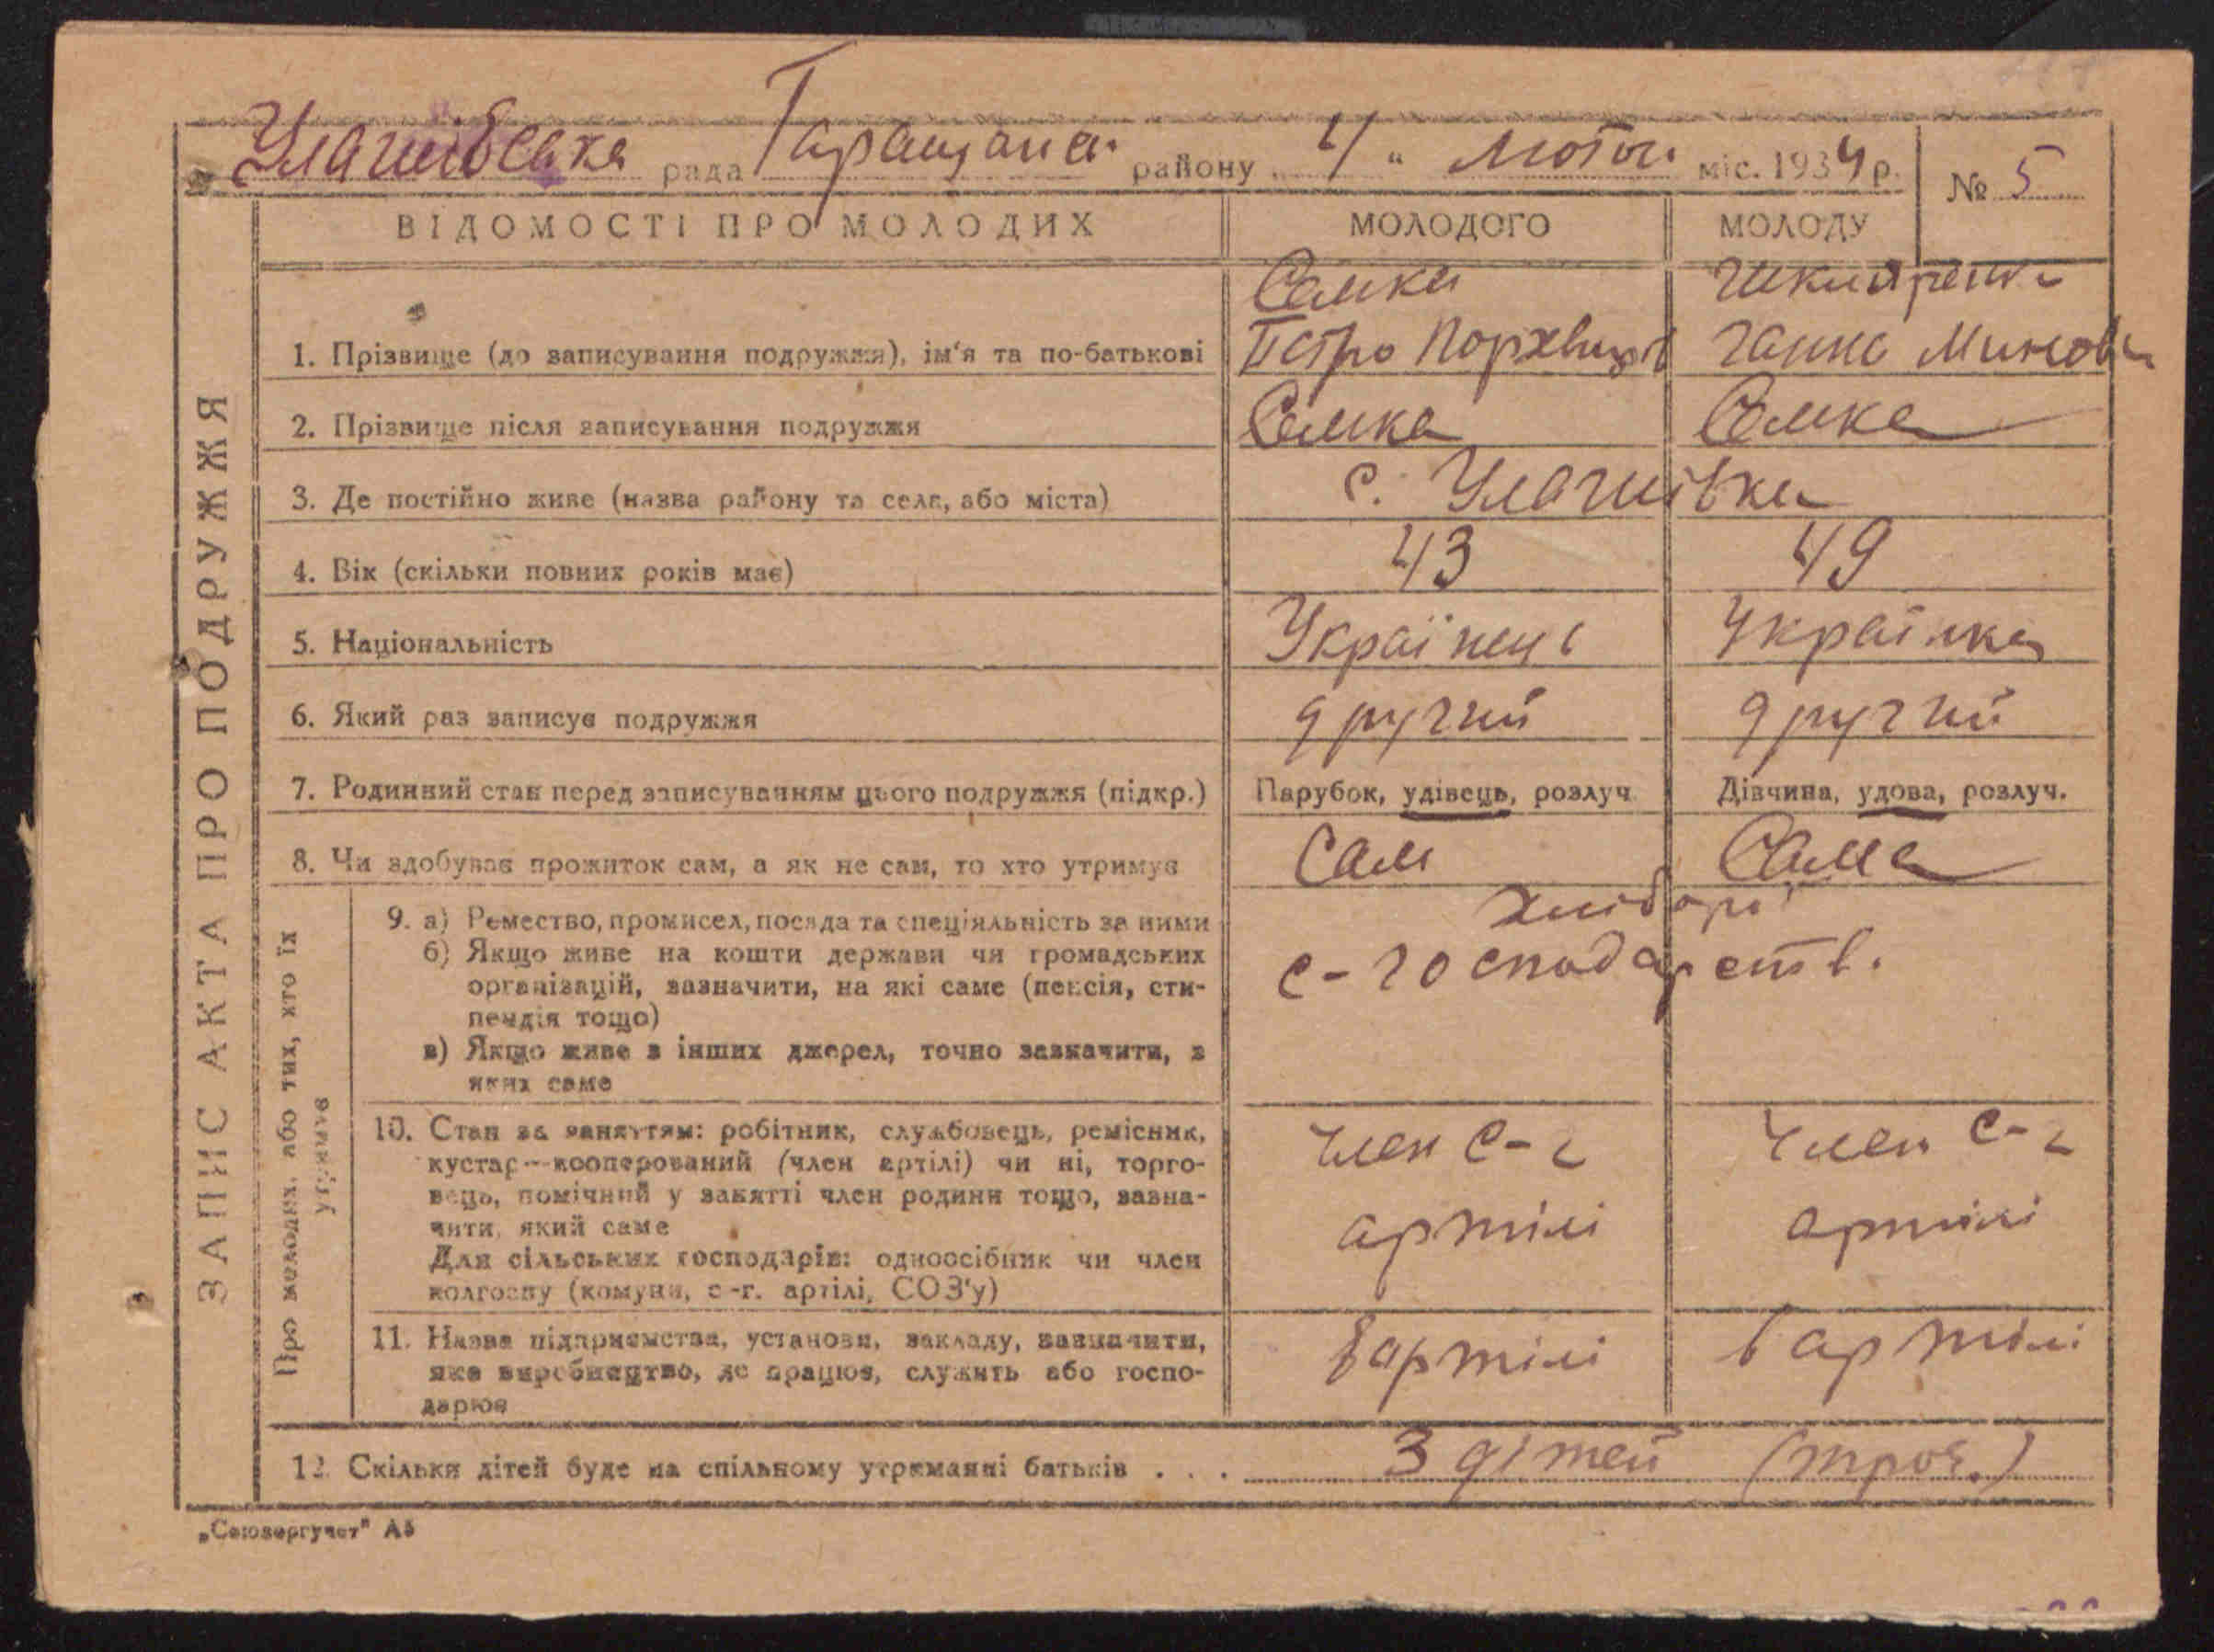 Улашівська рада Таращан. району „4“ лютого міс. 1934 р. № 5
ВІДОМОСТІ ПРО МОЛОДИХ МОЛОДОГО МОЛОДУ
ЗАПИС АКТА ПРО ПОДРУЖЖЯ
Семка Шкляренко
1. Прізвище (до записування подружжя), ім'я та по-батькові Петро Ганна
2. Прізвище після записування подружжя Семка Семка
3. Де постійно живе (назва району та села, або міста) с. Улашівка
4. Вік (скільки повних років має) 43 49
5. Національність Українець Українка
6. Який раз записує подружжя другий другий
7. Родинний стан перед записуванням цього подружжя (підкр.) Парубок, удівець, розлуч. Дівчина, удова, розлуч.
8. Чи здобуває прожиток сам, а як не сам, то хто утримує Сам Сама
Про молодих, або тих, хто їх утримує
9. а) Ремество, промисел, посада та спеціяльність за ними хлібороб
б) Якщо живе на кошти держави чи громадських с-господарств.
організацій, зазначити, на які саме (пенсія, сти-
пендія тощо)
в) Якщо живе з інших джерел, точно зазначити, з
яких саме
10. Стан за заняттям: робітник, службовець, ремісник, член с-г член с-г
кустар—кооперований (член артілі) чи ні, торго-
вець, помічний у занятті член родини тощо, зазна-
чити, який саме артілі артілі
Для сільських господарів: одноосібник чи член
колгоспу (комуни, с-г. артілі, СОЗ'у)
11. Назва підприємства, установи, закладу, зазначити, в артілі в артілі
яке виробництво, де працює, служить або госпо-
дарює
12. Скільки дітей буде на спільному утриманні батьків . . . 3 дітей (троє.)
„Союзоргучет" А5